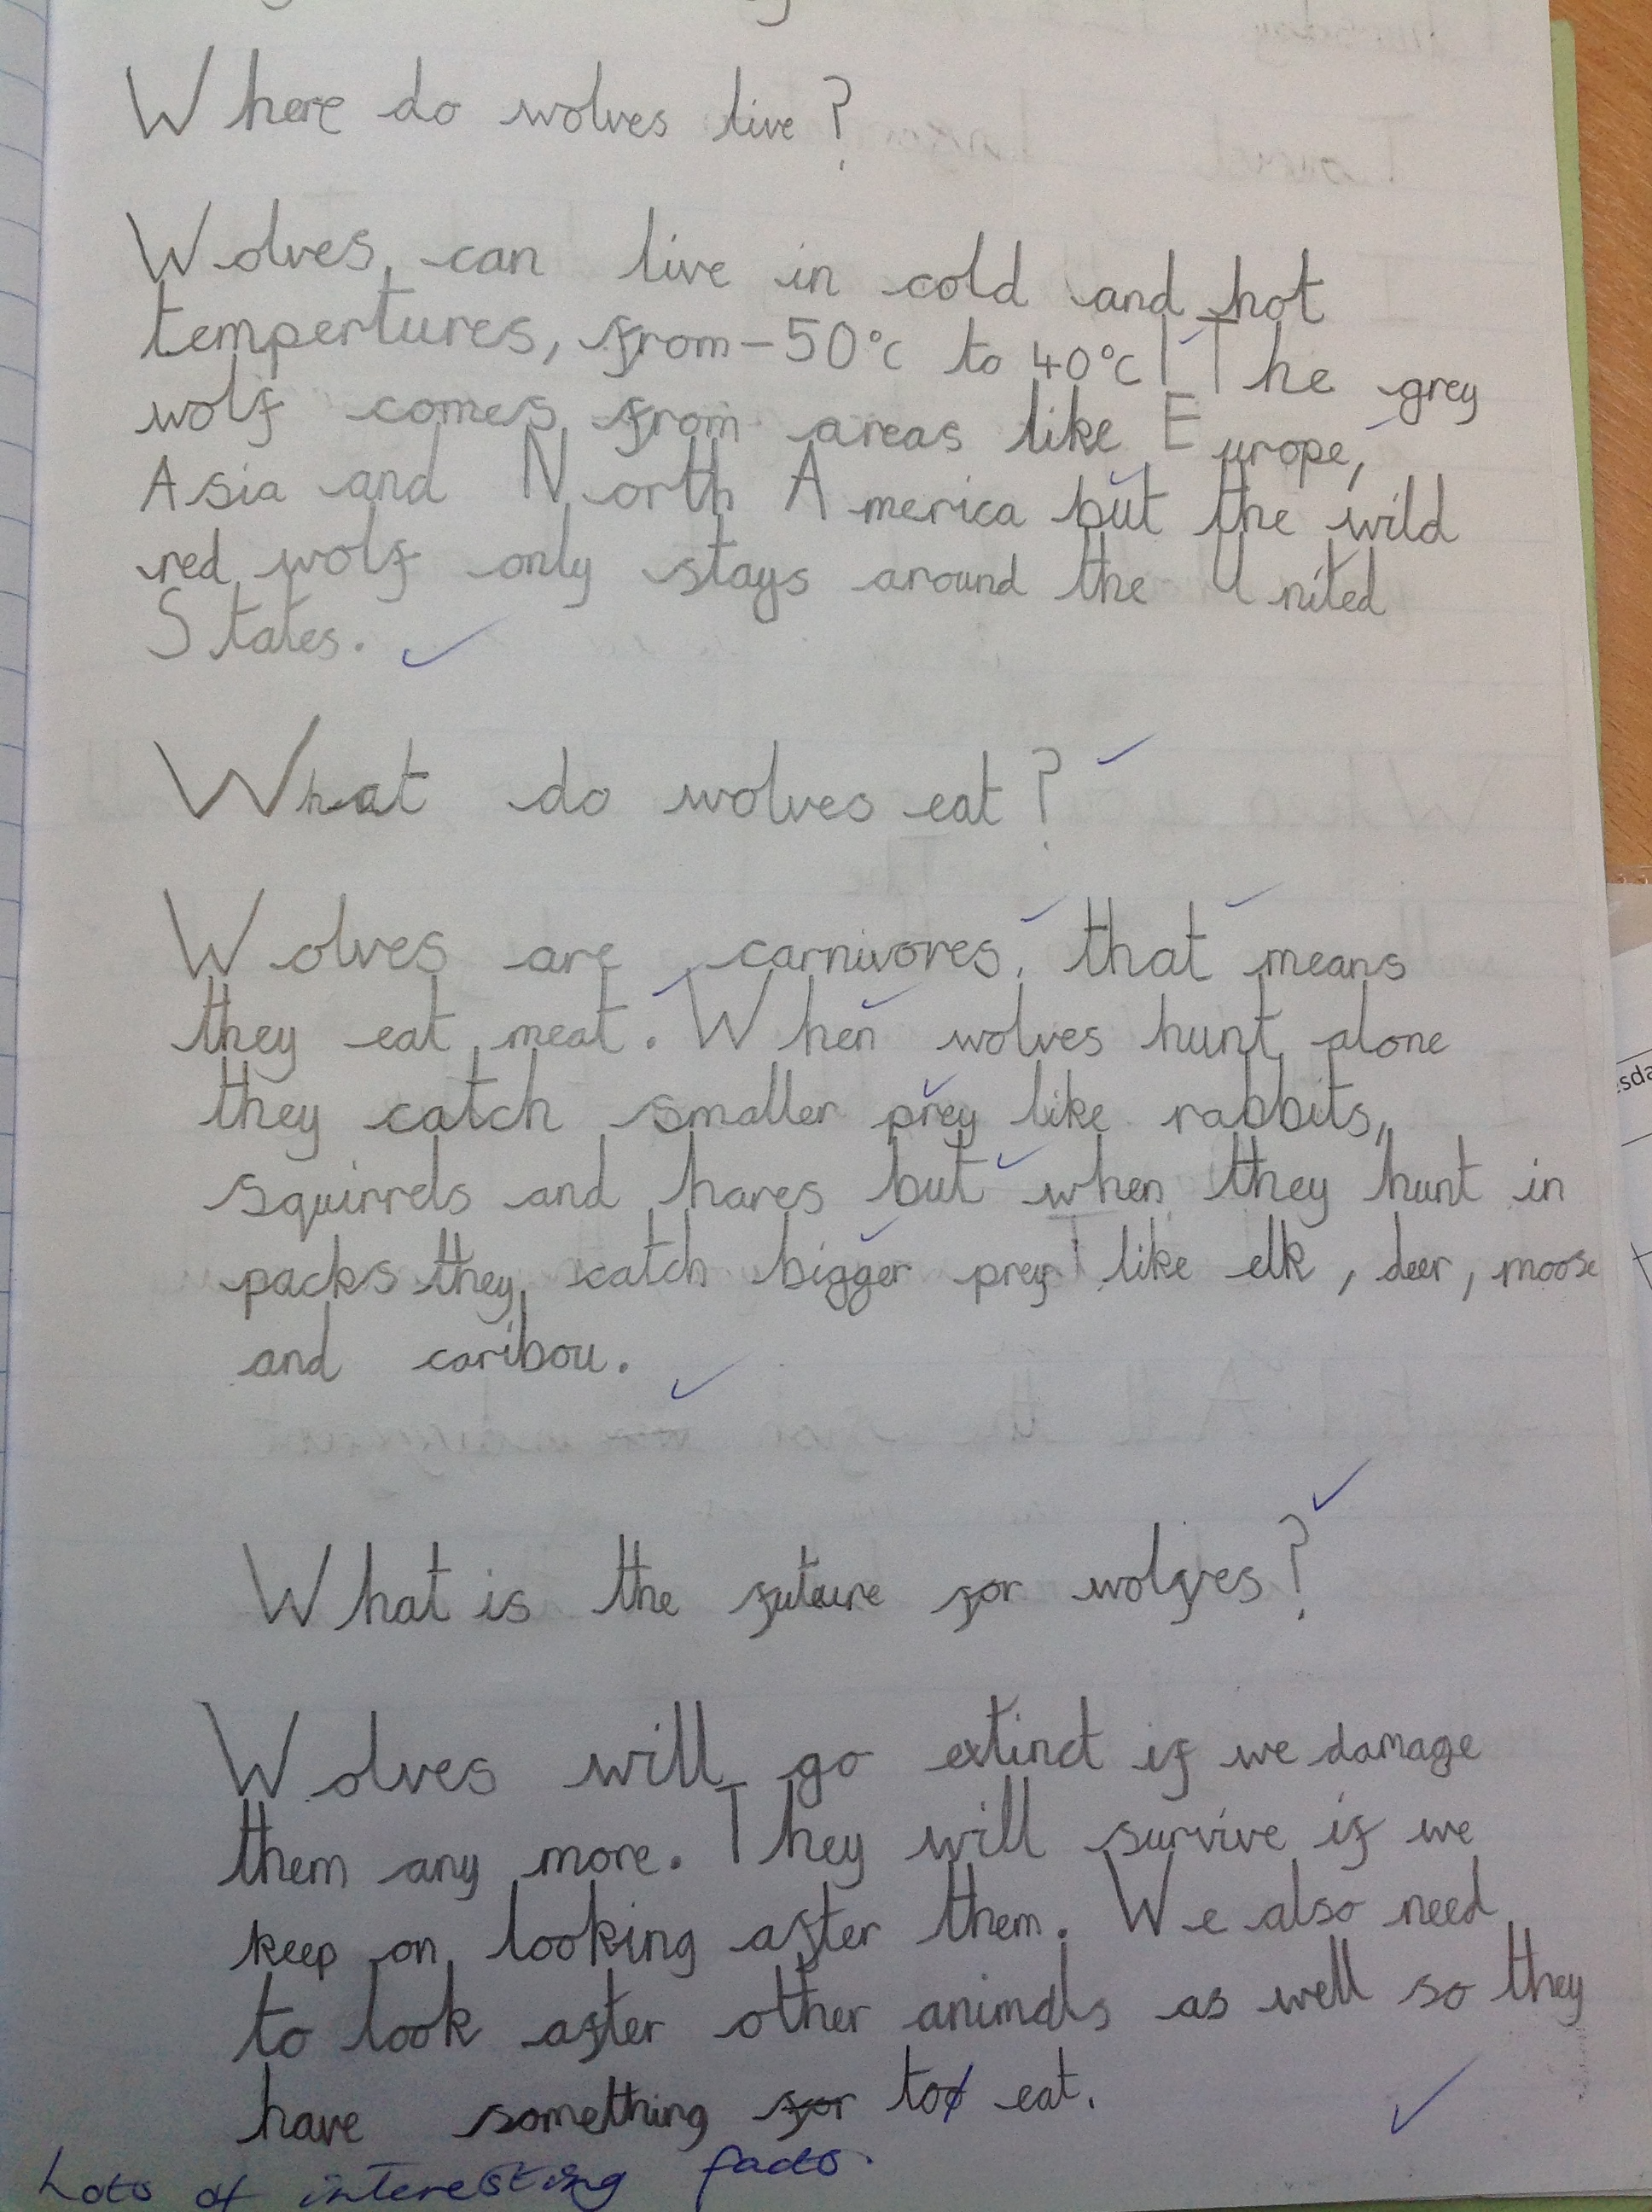 Where do wolves live?
Wolves can live in cold and hot
tempertures, from -50°c to 40°c! The grey
wolf comes from areas like Europe,
Asia and North America but the wild
red wolf only stays around the United
States.
What do wolves eat?
Wolves are carnivores, that means
they eat meat. When wolves hunt alone
they catch smaller prey like rabbits,
squirrels and hares but when they hunt in
packs they catch bigger prey like elk, deer, moose
and caribou.
What is the future for wolves?
Wolves will go extinct if we damage
them any more. They will survive if we
keep on looking after them. We also need
to look after other animals as well so they
have something for too eat.
Lots of interesting facts.